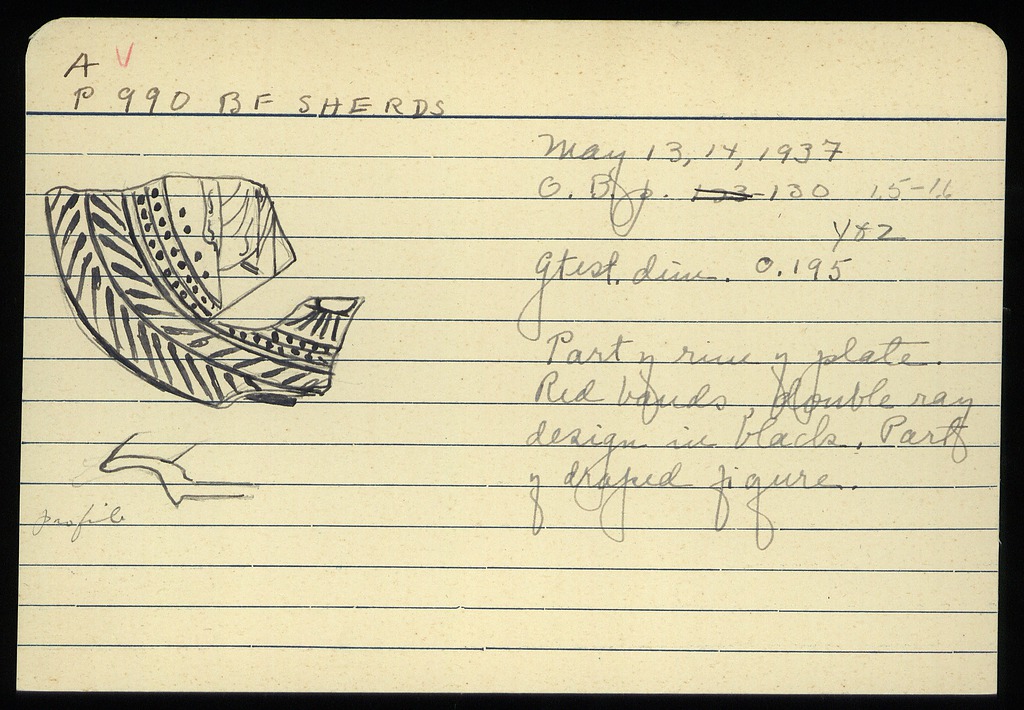 A V
P 990 BF SHERDS
May 13, 14, 1937
O. B. p. 133-130 15-16
Y&Z
Gtest. dim. 0.195
Part of rim of plate.
Red bands, double ray
design in black. Part
of draped figure.
profile